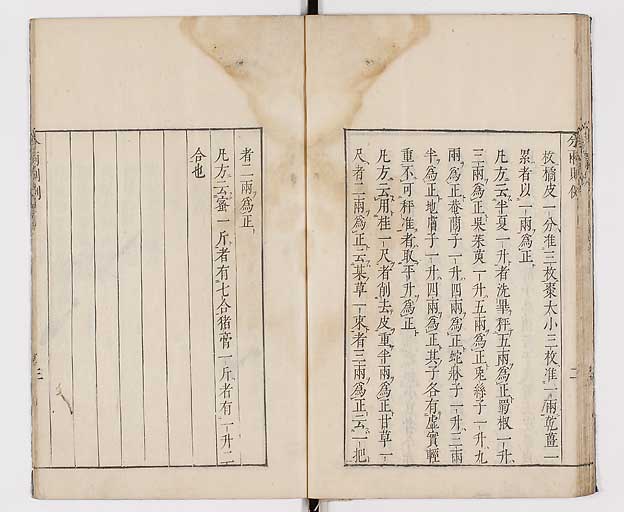 枚橘皮一分准三枚棗大小三枚准一兩乾薑一
累者以一兩爲正
凡方云半夏一升者洗畢秤五兩爲正蜀椒一升
三兩爲正吳茱萸一升五兩爲正兎絲子一升九
兩爲正菴䕡子一升四兩爲正蛇牀子一升三兩
半爲正地膚子一升四兩爲正其子各有虛實輕
重不可秤准者取平升爲正
凡方云用桂一尺者削去皮重半兩爲正甘草一
尺者二兩爲正云某草一束者三兩爲正云一把
者二兩爲正
凡方云蜜一斤者有七合猪膏一斤者有一升二
合也
分兩則例
二
三